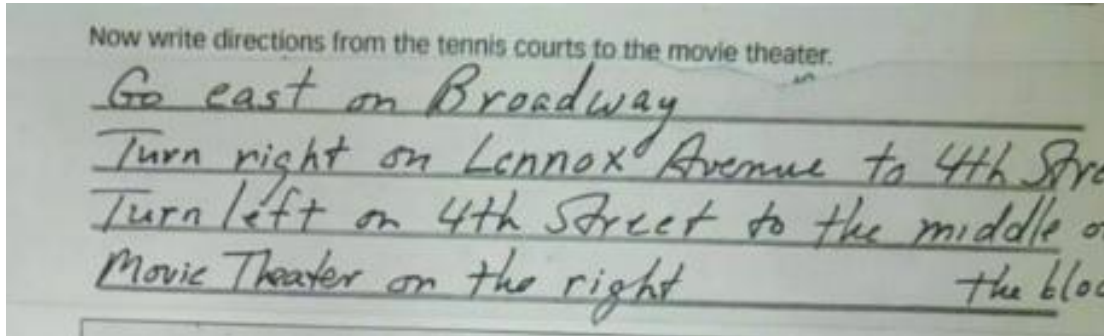 Now write directions from the tennis courts to the movie theater.
Go east on Broadway
Turn right on Lennox Avenue to 4th Stre
Turn left on 4th Street to the middle o
Movie Theater on the right the bloc